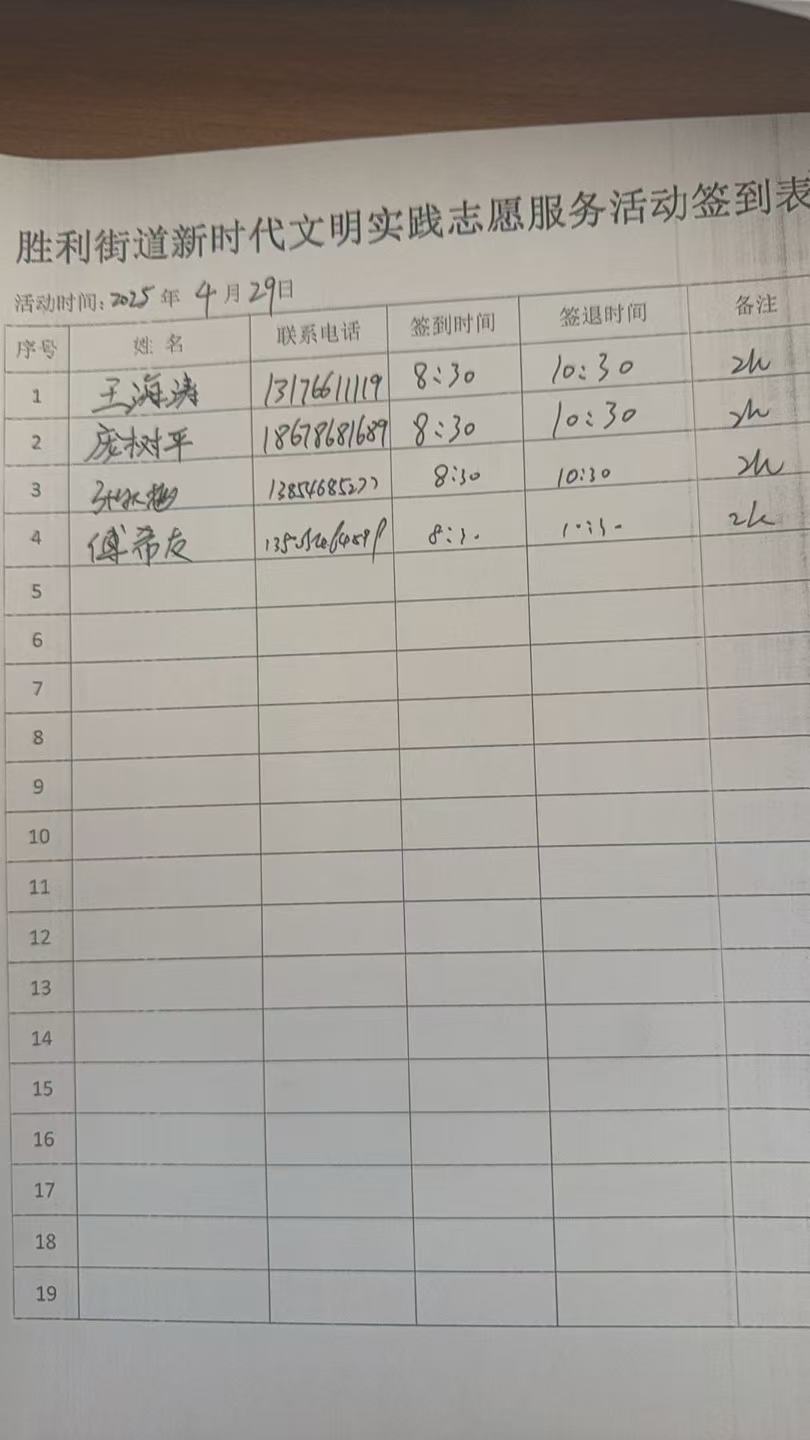 胜利街道新时代文明实践志愿服务活动签到表
活动时间：2025年 4月29日
序号 姓名 联系电话 签到时间 签退时间 备注
1 王海涛 13176611119 8:30 10:30 2h
2 庞树平 18678681689 8:30 10:30 2h
3 8:30 10:30 2h
4 傅希友 8:30 10:30 2h
5
6
7
8
9
10
11
12
13
14
15
16
17
18
19